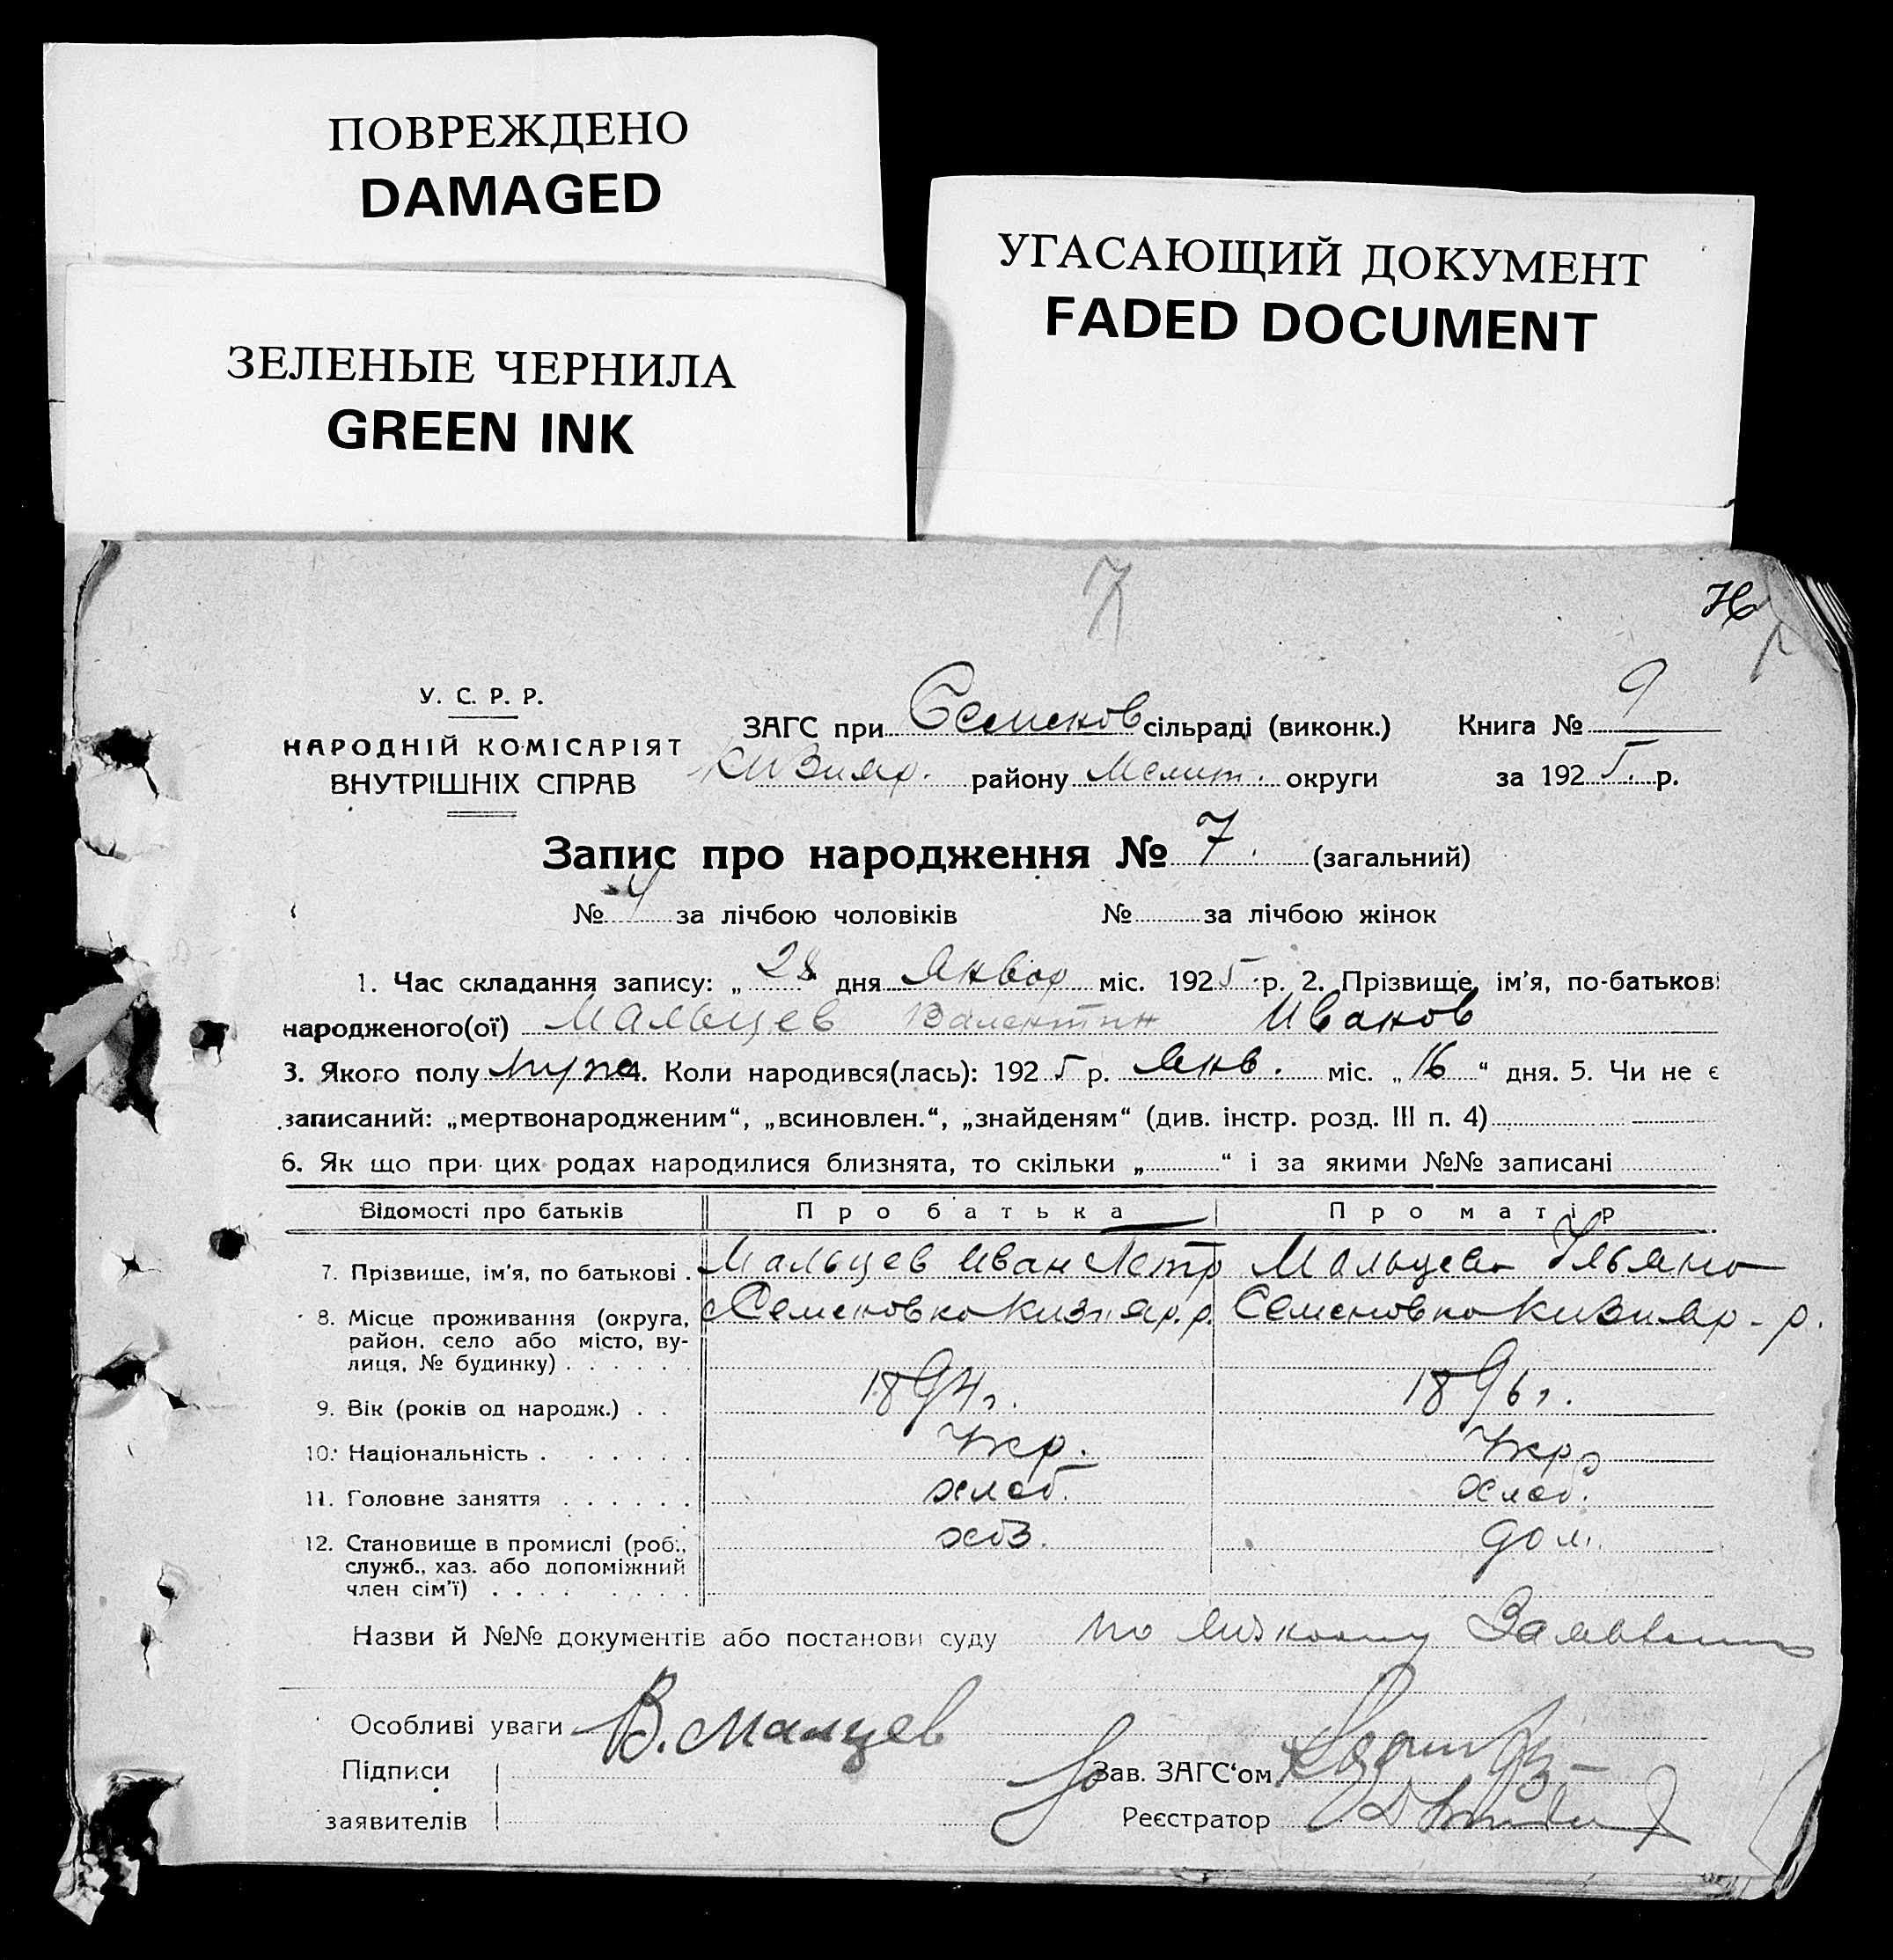 ПОВРЕЖДЕНО
DAMAGED
ЗЕЛЕНЫЕ ЧЕРНИЛА
GREEN INK
УГАСАЮЩИЙ ДОКУМЕНТ
FADED DOCUMENT
7
У. С. Р. Р.
НАРОДНІЙ КОМІСАРІЯТ
ВНУТРІШНІХ СПРАВ
ЗАГС при Семенов сільраді (виконк.) Книга № 9
Кизияр. району Мелит. округи за 192 5. р.
Запис про народження № 7. (загальний)
№ 4 за лічбою чоловіків № за лічбою жінок
1. Час складання запису: „ 28 дня Январ міс. 192 5 р. 2. Прізвище, ім'я, по-батькові
народженого(ої) Мальцев Валентин Иванов
3. Якого полу муж 4. Коли народився(лась): 192 5 р. Янв. міс. „ 16 “ дня. 5. Чи не є
записаний: „мертвонародженим“, „всиновлен.“, „знайденям“ (див. інстр. розд. III п. 4)
6. Як що при цих родах народилися близнята, то скільки „ “ і за якими №№ записані
Відомості про батьків Про батька Про матір
7. Прізвище, ім'я, по батькові . Мальцев Иван Петр Мальцева Ульяна
8. Місце проживання (округа, район, село або місто, ву-
лиця, № будинку) . . . . . . Семеновка Кизияр. р. Семеновка Кизияр. р.
9. Вік (років од народж.) . . 1894 г. 1896 г.
10. Національність . . . . . . Укр. Укр.
11. Головне заняття . . . . . . хлеб. хлеб.
12. Становище в промислі (роб., хоз. дом.
служб., хаз. або допоміжний
член сім'ї) . . . . . . . .
Назви й №№ документів або постанови суду по личному Заявлению
Особливі уваги В. Малцев
Підписи Зав. ЗАГС'ом
заявителів Реєстратор